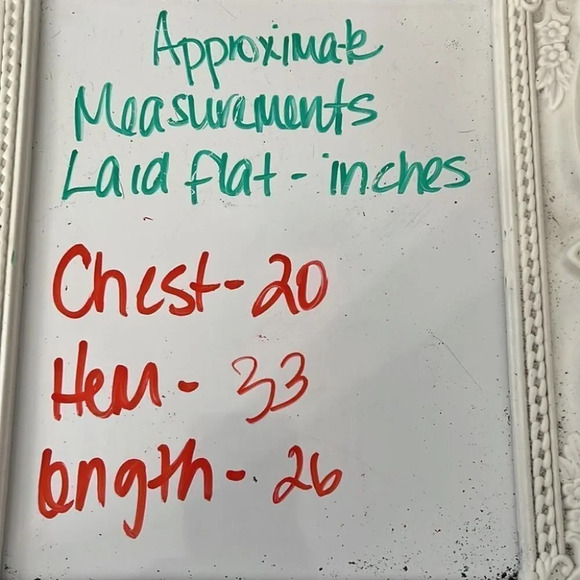 Approximate
Measurements
Laid flat - inches
Chest - 20
Hem - 33
length - 26